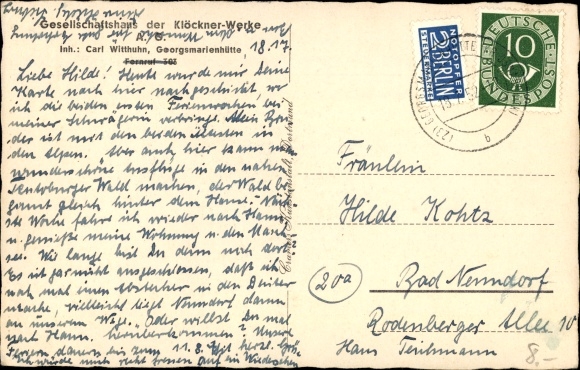 Gesellschaftshaus der Klöckner-Werke
A. G.
Inh.: Carl Witthuhn, Georgsmarienhütte,
Fernruf 303
18.17.
Liebe Hilde! Heute wurde mir Deine
Karte nach hier nachgeschickt, wo
ich die beiden ersten Ferienwochen bei
meiner Schwägerin verbringe. Mein Bru-
der ist mit den beiden Ältesten in
den Alpen. Aber auch hier kann man
wunderschöne Ausflüge in den nahen
Teutoburger Wald machen, der Wald be-
ginnt gleich hinter dem Hause. Näch-
ste Woche fahre ich wieder nach Hann.
u. genieße meine Wohnung u. den Masch-
see. Wie lange bist Du denn noch dort?
Es ist gar nicht ausgeschlossen, daß ich
noch mal einen Abstecher in den Deister
mache, vielleicht liegt Nenndorf dann
an unserem Wege. Oder willst Du mal
nach Hann. herüberkommen? Unsere
Ferien dauern bis zum 11.8. Mit herzl.
Ich würde mich recht freuen auf ein Wiedersehen
NOTOPFER
2 BERLIN
STEUERMARKE
DEUTSCHE
BUNDESPOST
10
b
Fräulein
Hilde Kohtz
20a
Bad Nenndorf
Rodenberger Allee 10
Haus Teichmann
8.-